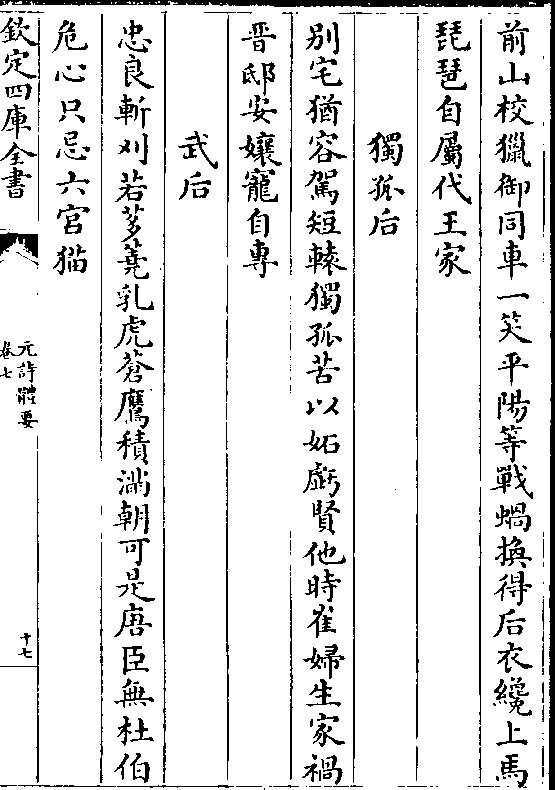 前山校獵御同車一笑平陽等戰蝸換得后衣纔上馬
琵琶自屬代王家
獨孤后
别宅猶容駕短轅獨孤苦以妬虧賢他時崔婦生家禍
晉邸安孃寵自專
武后
忠良斬刈若芟蕘乳虎蒼鷹積滿朝可是唐臣無杜伯
危心只忌六宫猫
欽定四庫全書
元詩體要
卷七
十七